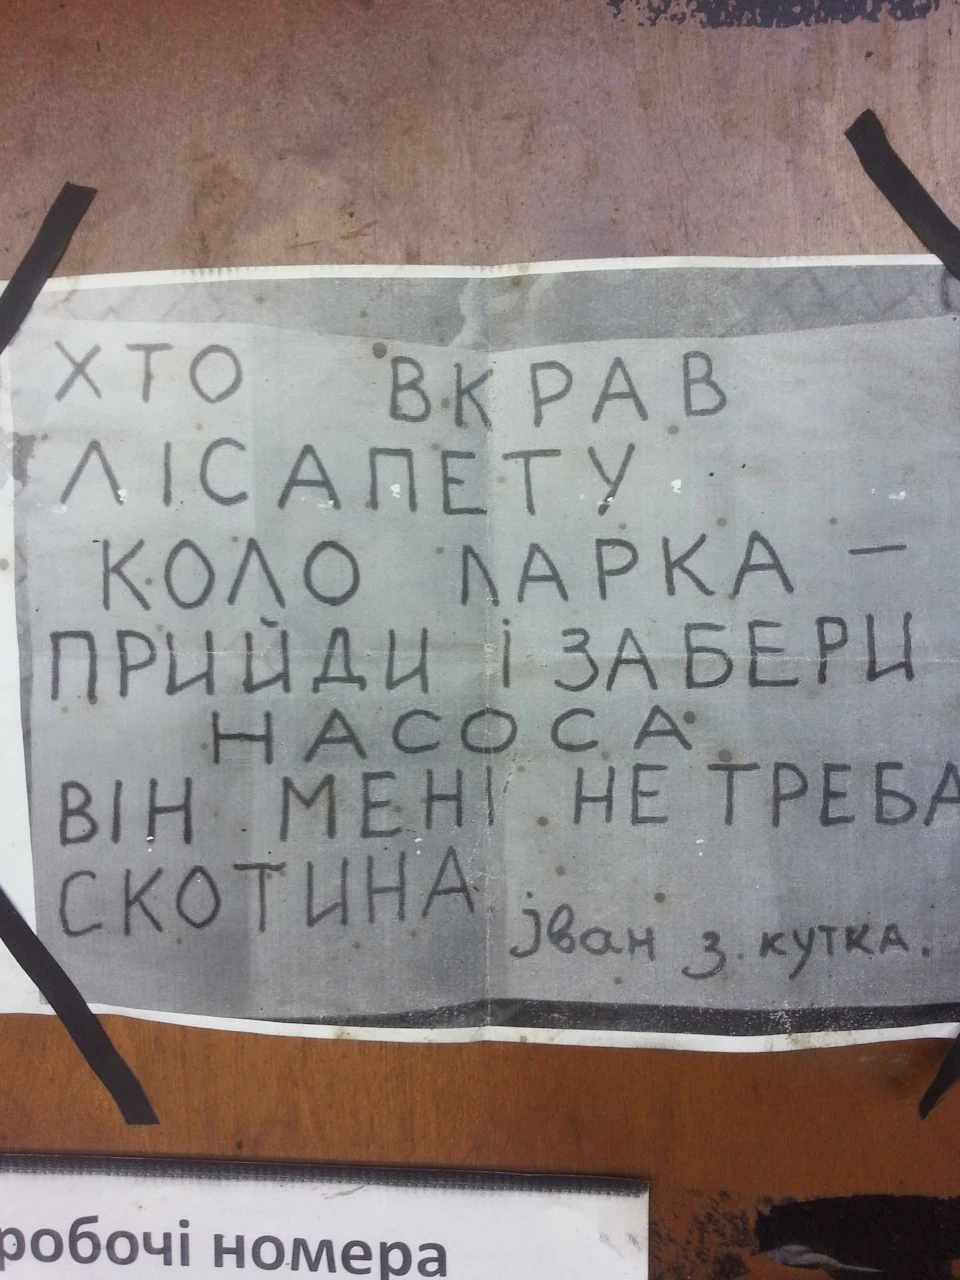 ХТО ВКРАВ
ЛІСАПЕТУ
КОЛО ПАРКА —
ПРИЙДИ І ЗАБЕРИ
НАСОСА
ВІН МЕНІ НЕ ТРЕБА
СКОТИНА
Јван з. кутка.
робочі номера